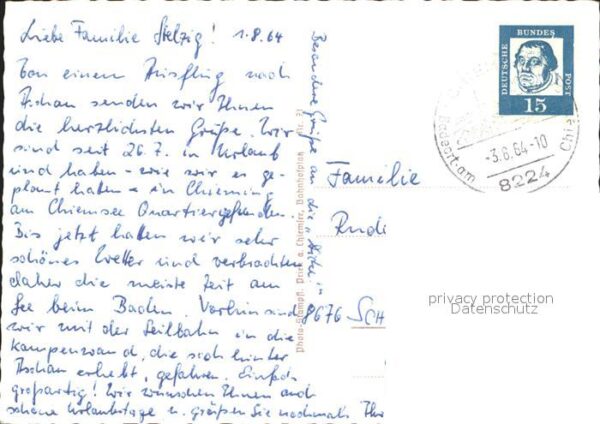 Liebe Familie Stelzig! 1.8.64
Von einem Ausflug nach
Aschau senden wir Ihnen
die herzlichsten Grüße. Wir
sind seit 26.7. in Urlaub
und haben - wie wir es ge-
plant hatten - in Chieming
am Chiemsee Quartier gefunden.
Bis jetzt hatten wir sehr
schönes Wetter und verbrachten
daher die meiste Zeit am
See beim Baden. Vorhin sind
wir mit der Seilbahn in die
Kampenwand, die sich hinter
Aschau erhebt, gefahren. Einfach
großartig! Wir wünschen Ihnen auch
schöne Urlaubstage u. grüßen Sie nochmals Ihre
Besondere Grüße an die
Photo-Stampfl, Prien a. Chiemsee, Bahnhofplatz
DEUTSCHE BUNDES POST
15
Badeort am Chie
-3.8.64-10
8224
Familie
Rudi
8676 SCH
privacy protection
Datenschutz